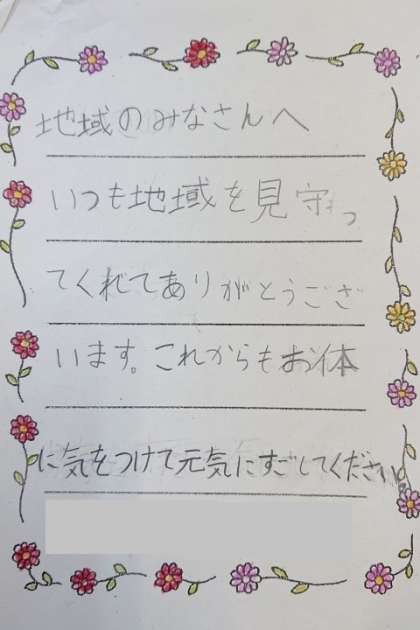 地域のみなさんへ
いつも地域を見守っ
てくれてありがとうござ
います。これからもお体
に気をつけて元気にすごしてください。